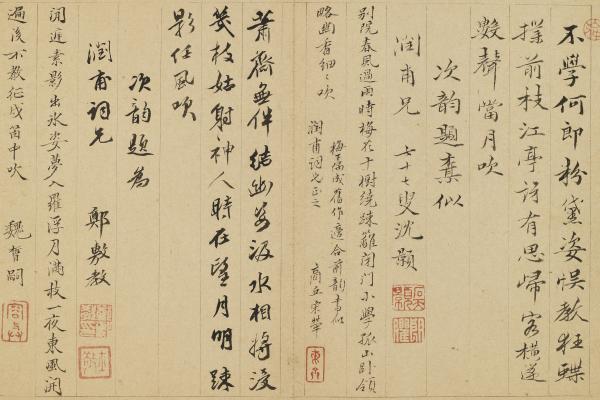 不學何郎粉黛姿悞教狂蝶
探前枝江亭詩有思歸客橫篴
數聲當月吹
次韻題奉似
潤甫兄 七十七叟沈顥
別院春風過雨時梅花千樹繞疎籬閉門小學孤山卧領
略幽香細〻吹
梅成舊作適合前韻書似
潤甫詞兄正之 商丘宋犖
蕭齋無伴結幽姿汲水相將浸
枝姑射神人時在望月明踈
影任風吹
次韻題為
潤甫詞兄 鄭敷教
素影出氷姿夢入羅浮月滿枝一夜東風開
遍後不教征戍笛中吹 魏嗣